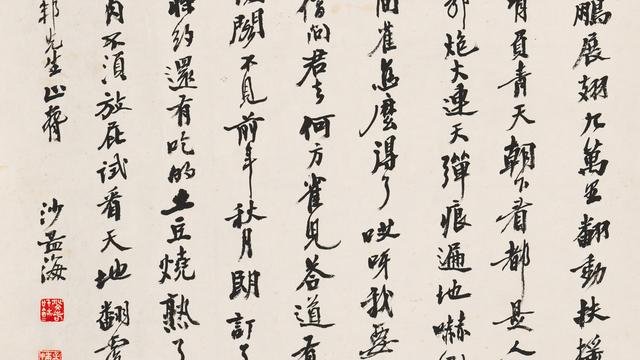 鵬展翅九萬里翻動扶搖
負青天朝下看都是人
郭炮火連天彈痕遍地嚇倒
間雀怎麼得了哎呀我要
借問君去何方雀兒答道有
閣不見前年秋月朗訂了
約還有吃的土豆燒熟了
肉不須放屁試看天地翻覆
先生正
沙孟海